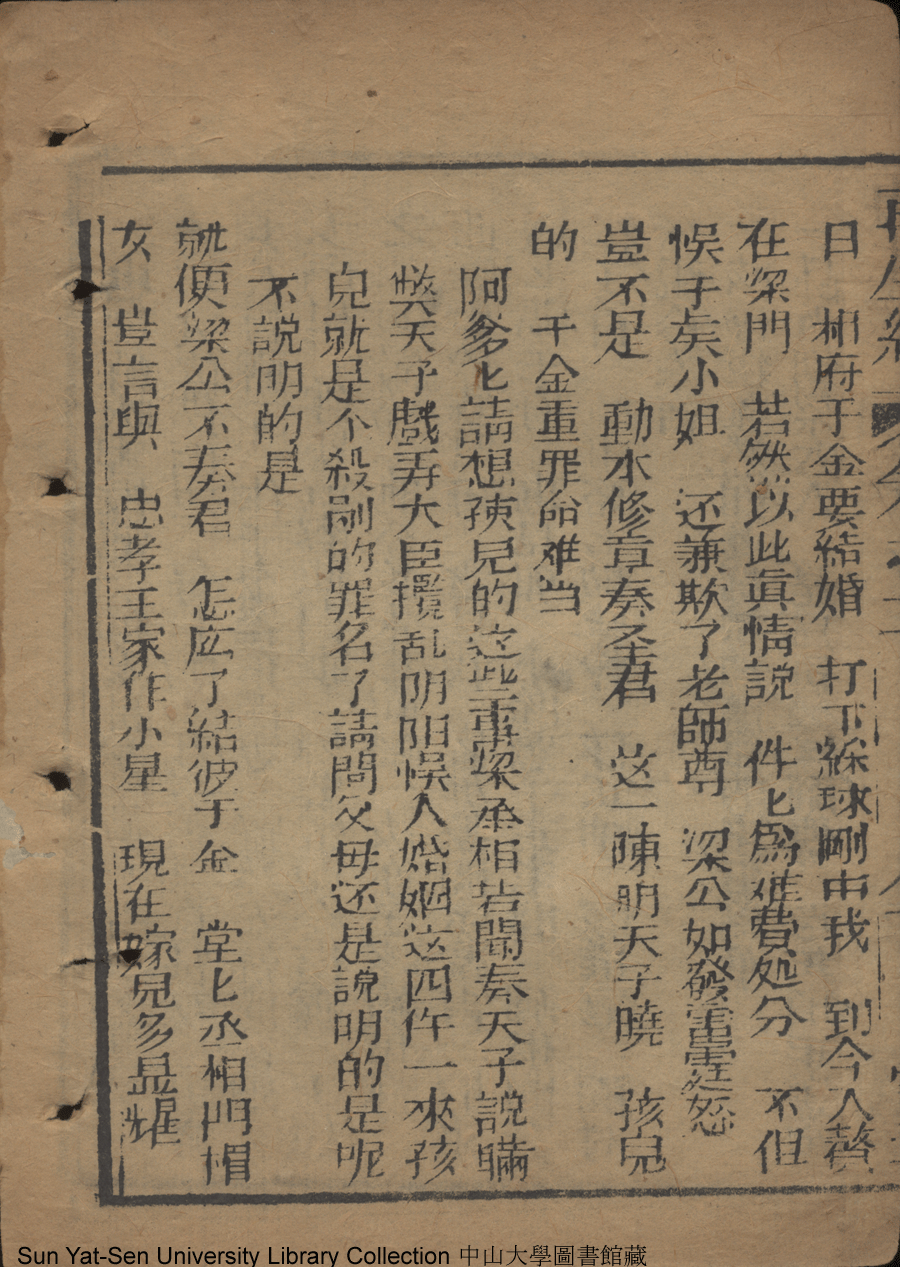 再生縁
日　相府于金要結婚　打下綵球剛中我　到今入贅
在梁門　若然以此眞情説　件匕爲难費処分　不但
悮于矣小姐　还兼欺了老師尊　梁公如發雷霆怒
豈不是　動本修章奏圣君　这一陳明天子曉　孩兒
的　千金重罪命难当
阿爹匕請想孩兒的这些事梁丞相若聞奏天子説瞞
獘天子戲弄大臣攪乱阴阳悮人婚姻这四件一來孩
兒就是个殺剐的罪名了請問父母还是説明的是呢
不説明的是
就便梁公不奏君　怎庅了結彼于金　堂匕丞相門楣
女　豈言與　忠孝王家作小星　現在嫁兒多显耀
Sun Yat-Sen University Library Collection 中山大學圖書館藏